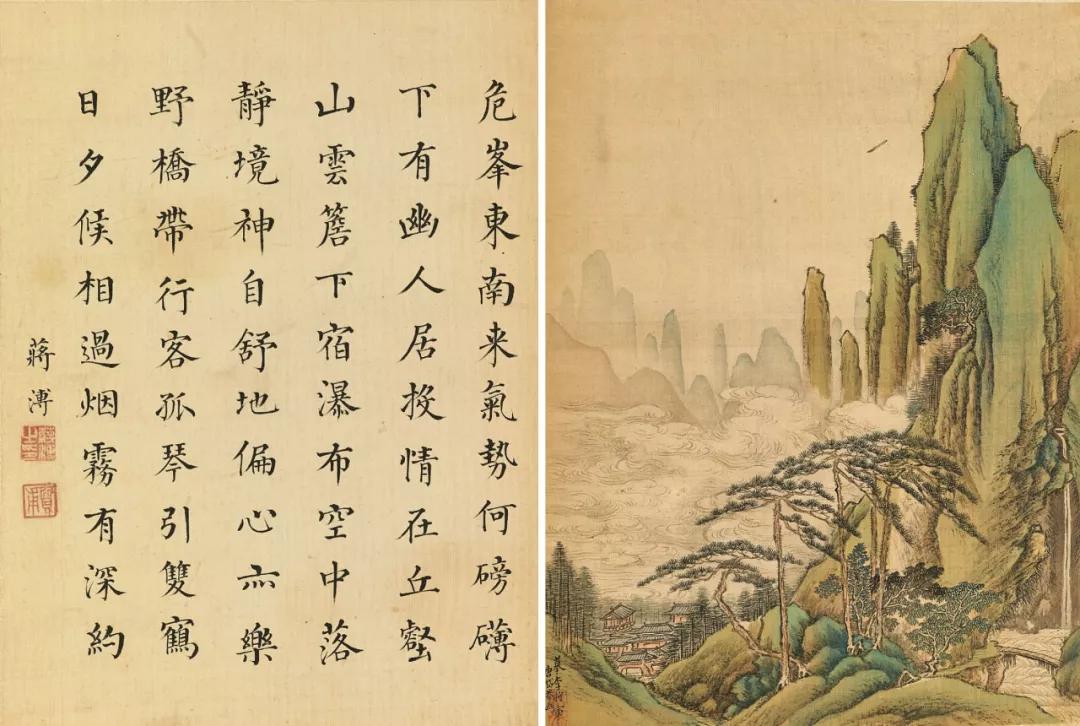 危峯東南来氣勢何磅礴
下有幽人居投情在丘壑
山雲簷下宿瀑布空中落
靜境神自舒地偏心亦樂
野橋帶行客孤琴引雙鶴
日夕候相過烟霧有深約
蔣溥